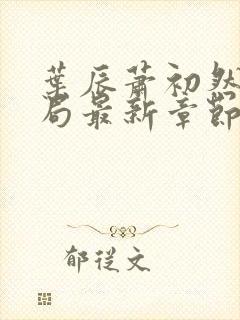 葉辰蕭初然
局最新章節
郁從文